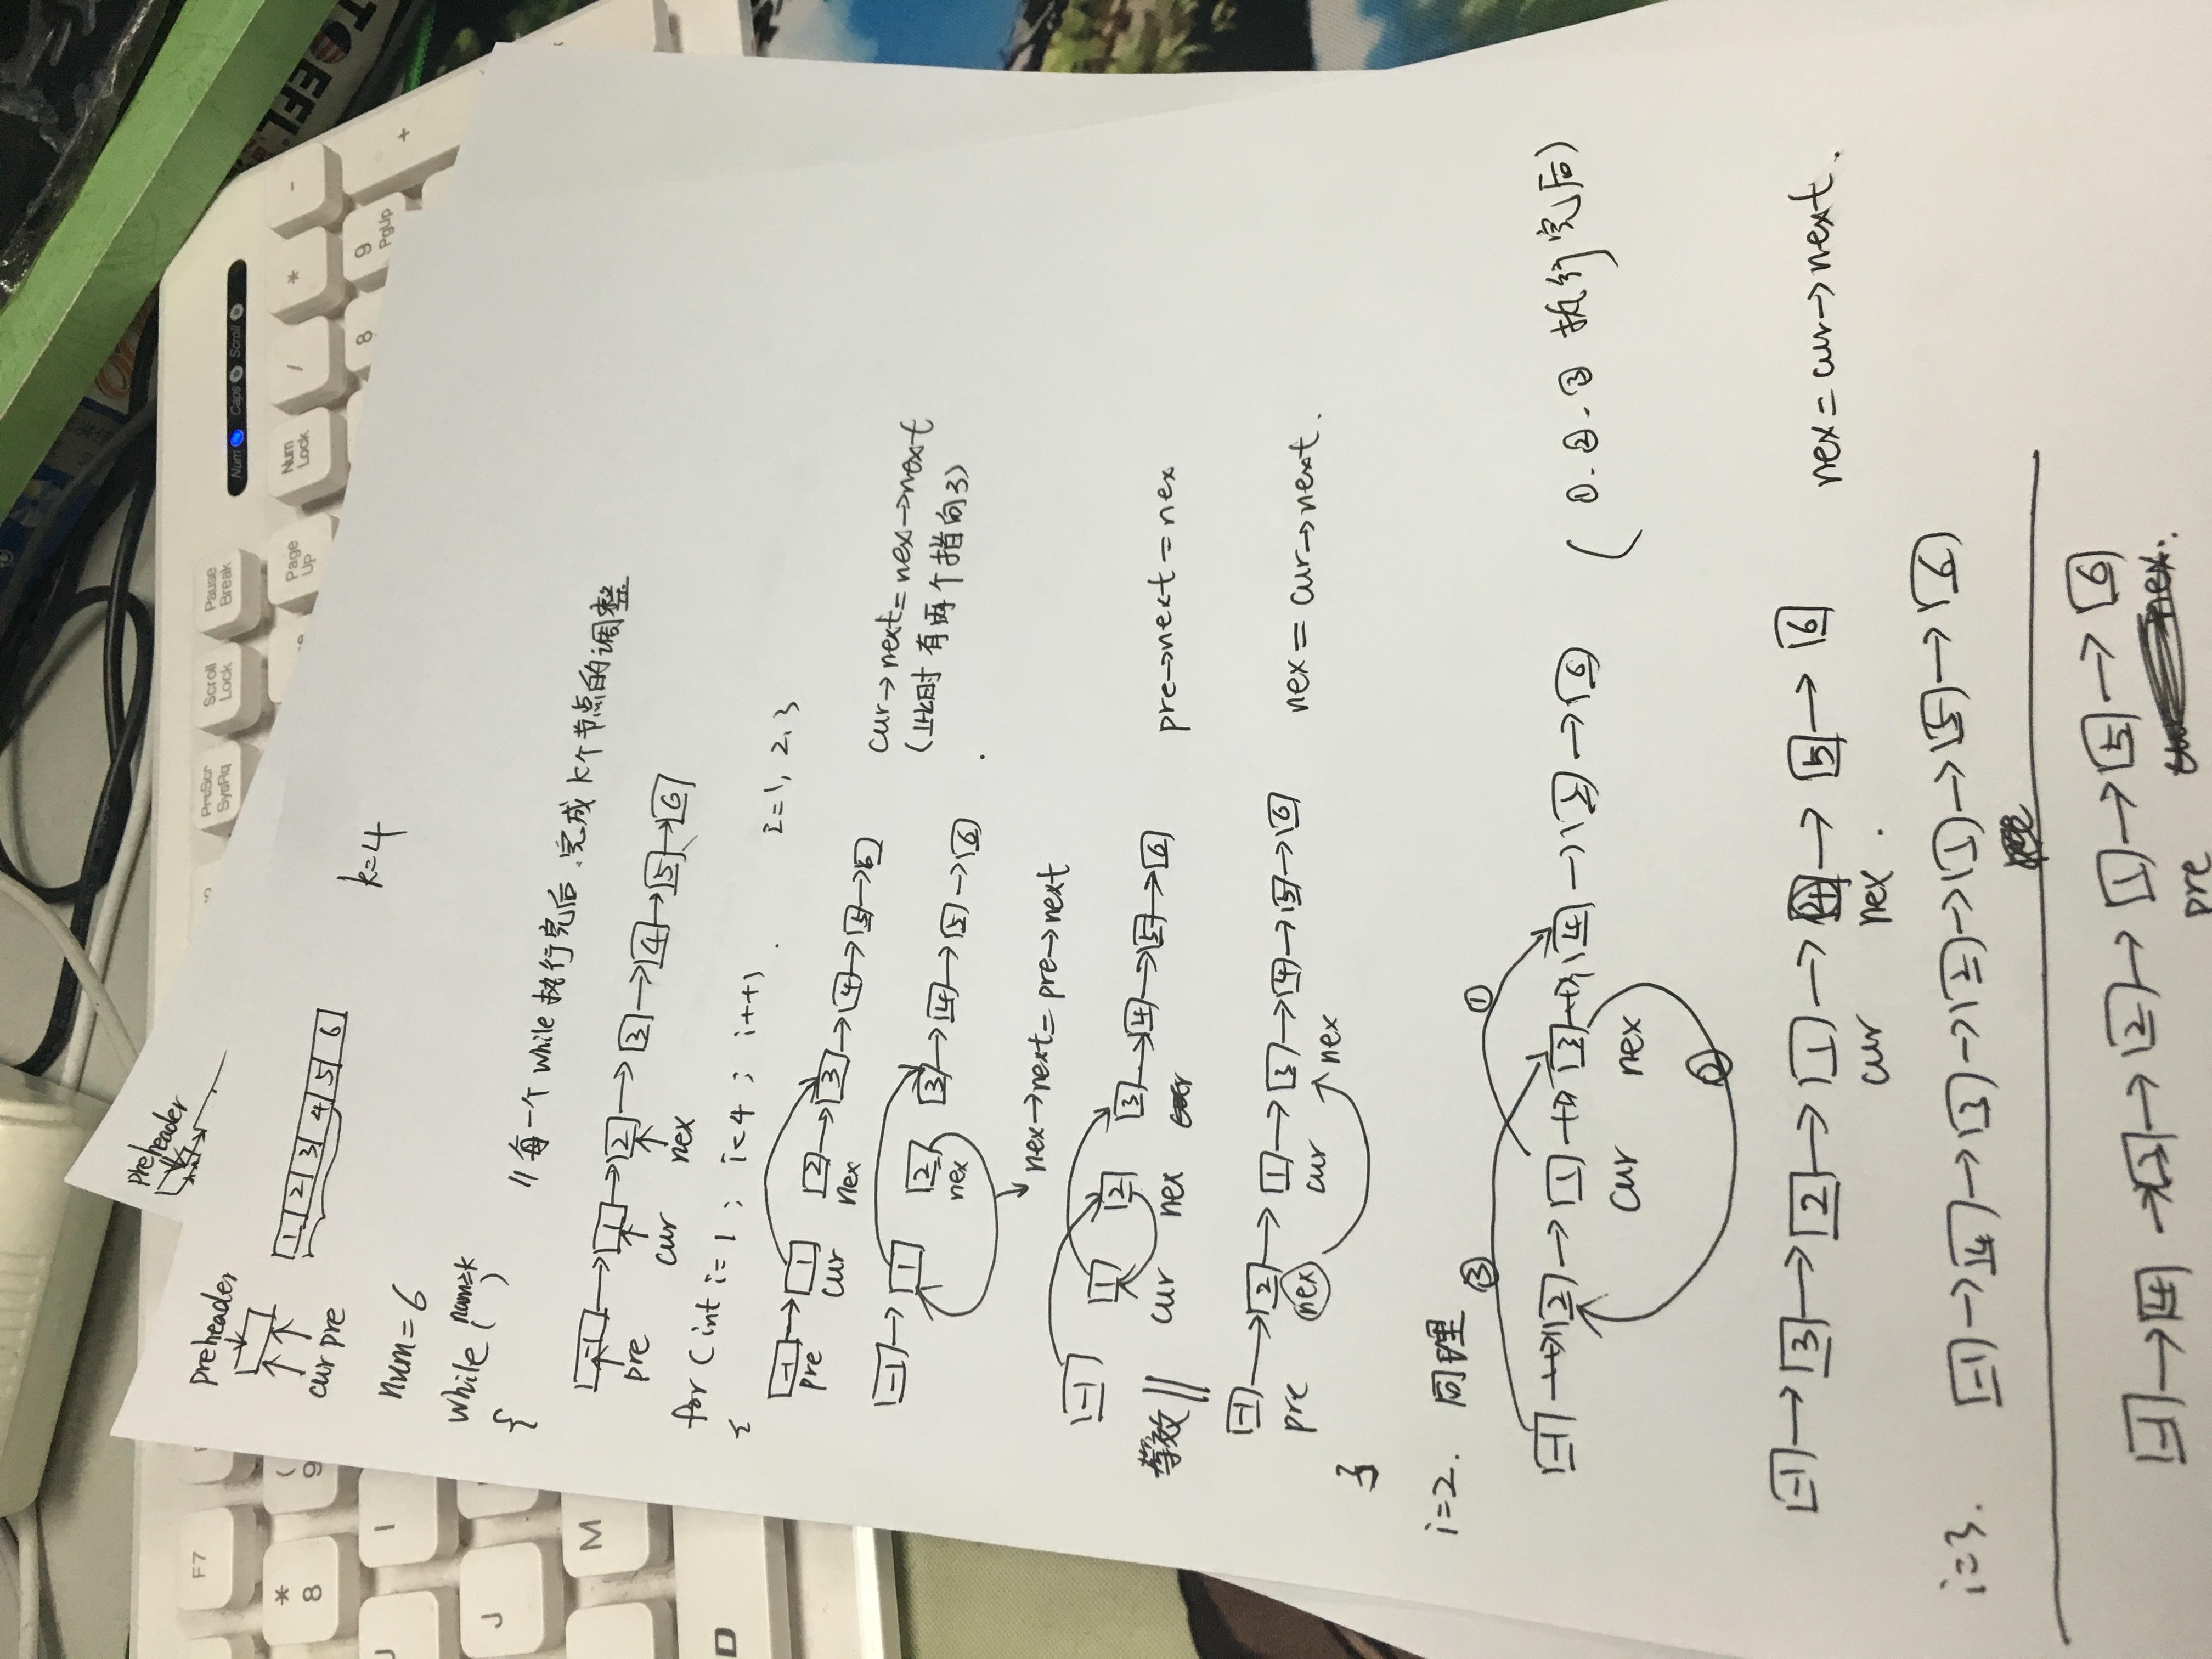 preheader
preheader
cur pre
1 2 3 4 5 6
k=4
num=6
while (num≥k)
{
//每一个while执行完后、完成k个节点的调整
-1 → 1 → 2 → 3 → 4 → 5 → 6
pre cur nex
for (int i=1; i<4; i++)
i=1, 2, 3
{
-1 → 1 2 → 3 → 4 → 5 → 6
pre cur nex
cur→next=nex→next
(此时有两个指向3)
-1 → 1 2 3 → 4 → 5 → 6
nex
nex→next=pre→next
-1 1 2 3 → 4 → 5 → 6
cur nex
pre→next=nex
等效
-1 → 2 → 1 → 3 → 4 → 5 → 6
pre nex cur nex
nex=cur→next.
}
i=2. 同理
③ ①
-1 → 2 → 1 → 3 → 4 → 5 → 6
cur nex
(①.②.③执行完后)
②
-1 → 3 → 2 → 1 → 4 → 5 → 6
cur nex.
nex=cur→next.
i=3. -1 → 4 → 3 → 2 → 1 → 5 → 6
-1 → 4 → 3 → 2 → 1 → 5 → 6
pre nex.
F7
*
8
(
9
J
I
J
M
D
PrtScr
SysRq
Scroll
Lock
Pause
Break
Num Caps Scroll
Page
Up
Num
Lock
/
*
-
8
9
PgUp
+